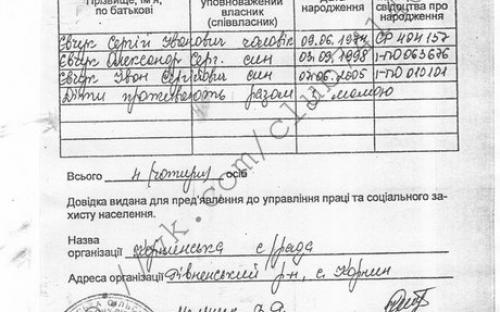 Прізвище, ім'я, по батькові
уповноважений власник (співвласник)
народження
свідоцтва про народження
Євчук Сергій Іванович чоловік 09.06.1974 СР 404157
Євчук Олександр Серг. син 03.09.1998 І-ГЮ 063676
Євчук Іван Сергійович син
Діти проживають разом з мамою
Всього 4 (чотири) осіб
Довідка видана для пред'явлення до управління праці та соціального за-
хисту населення.
Назва
організації Корнинська с/рада
Адреса організації Рівненський р-н, с. Корнин